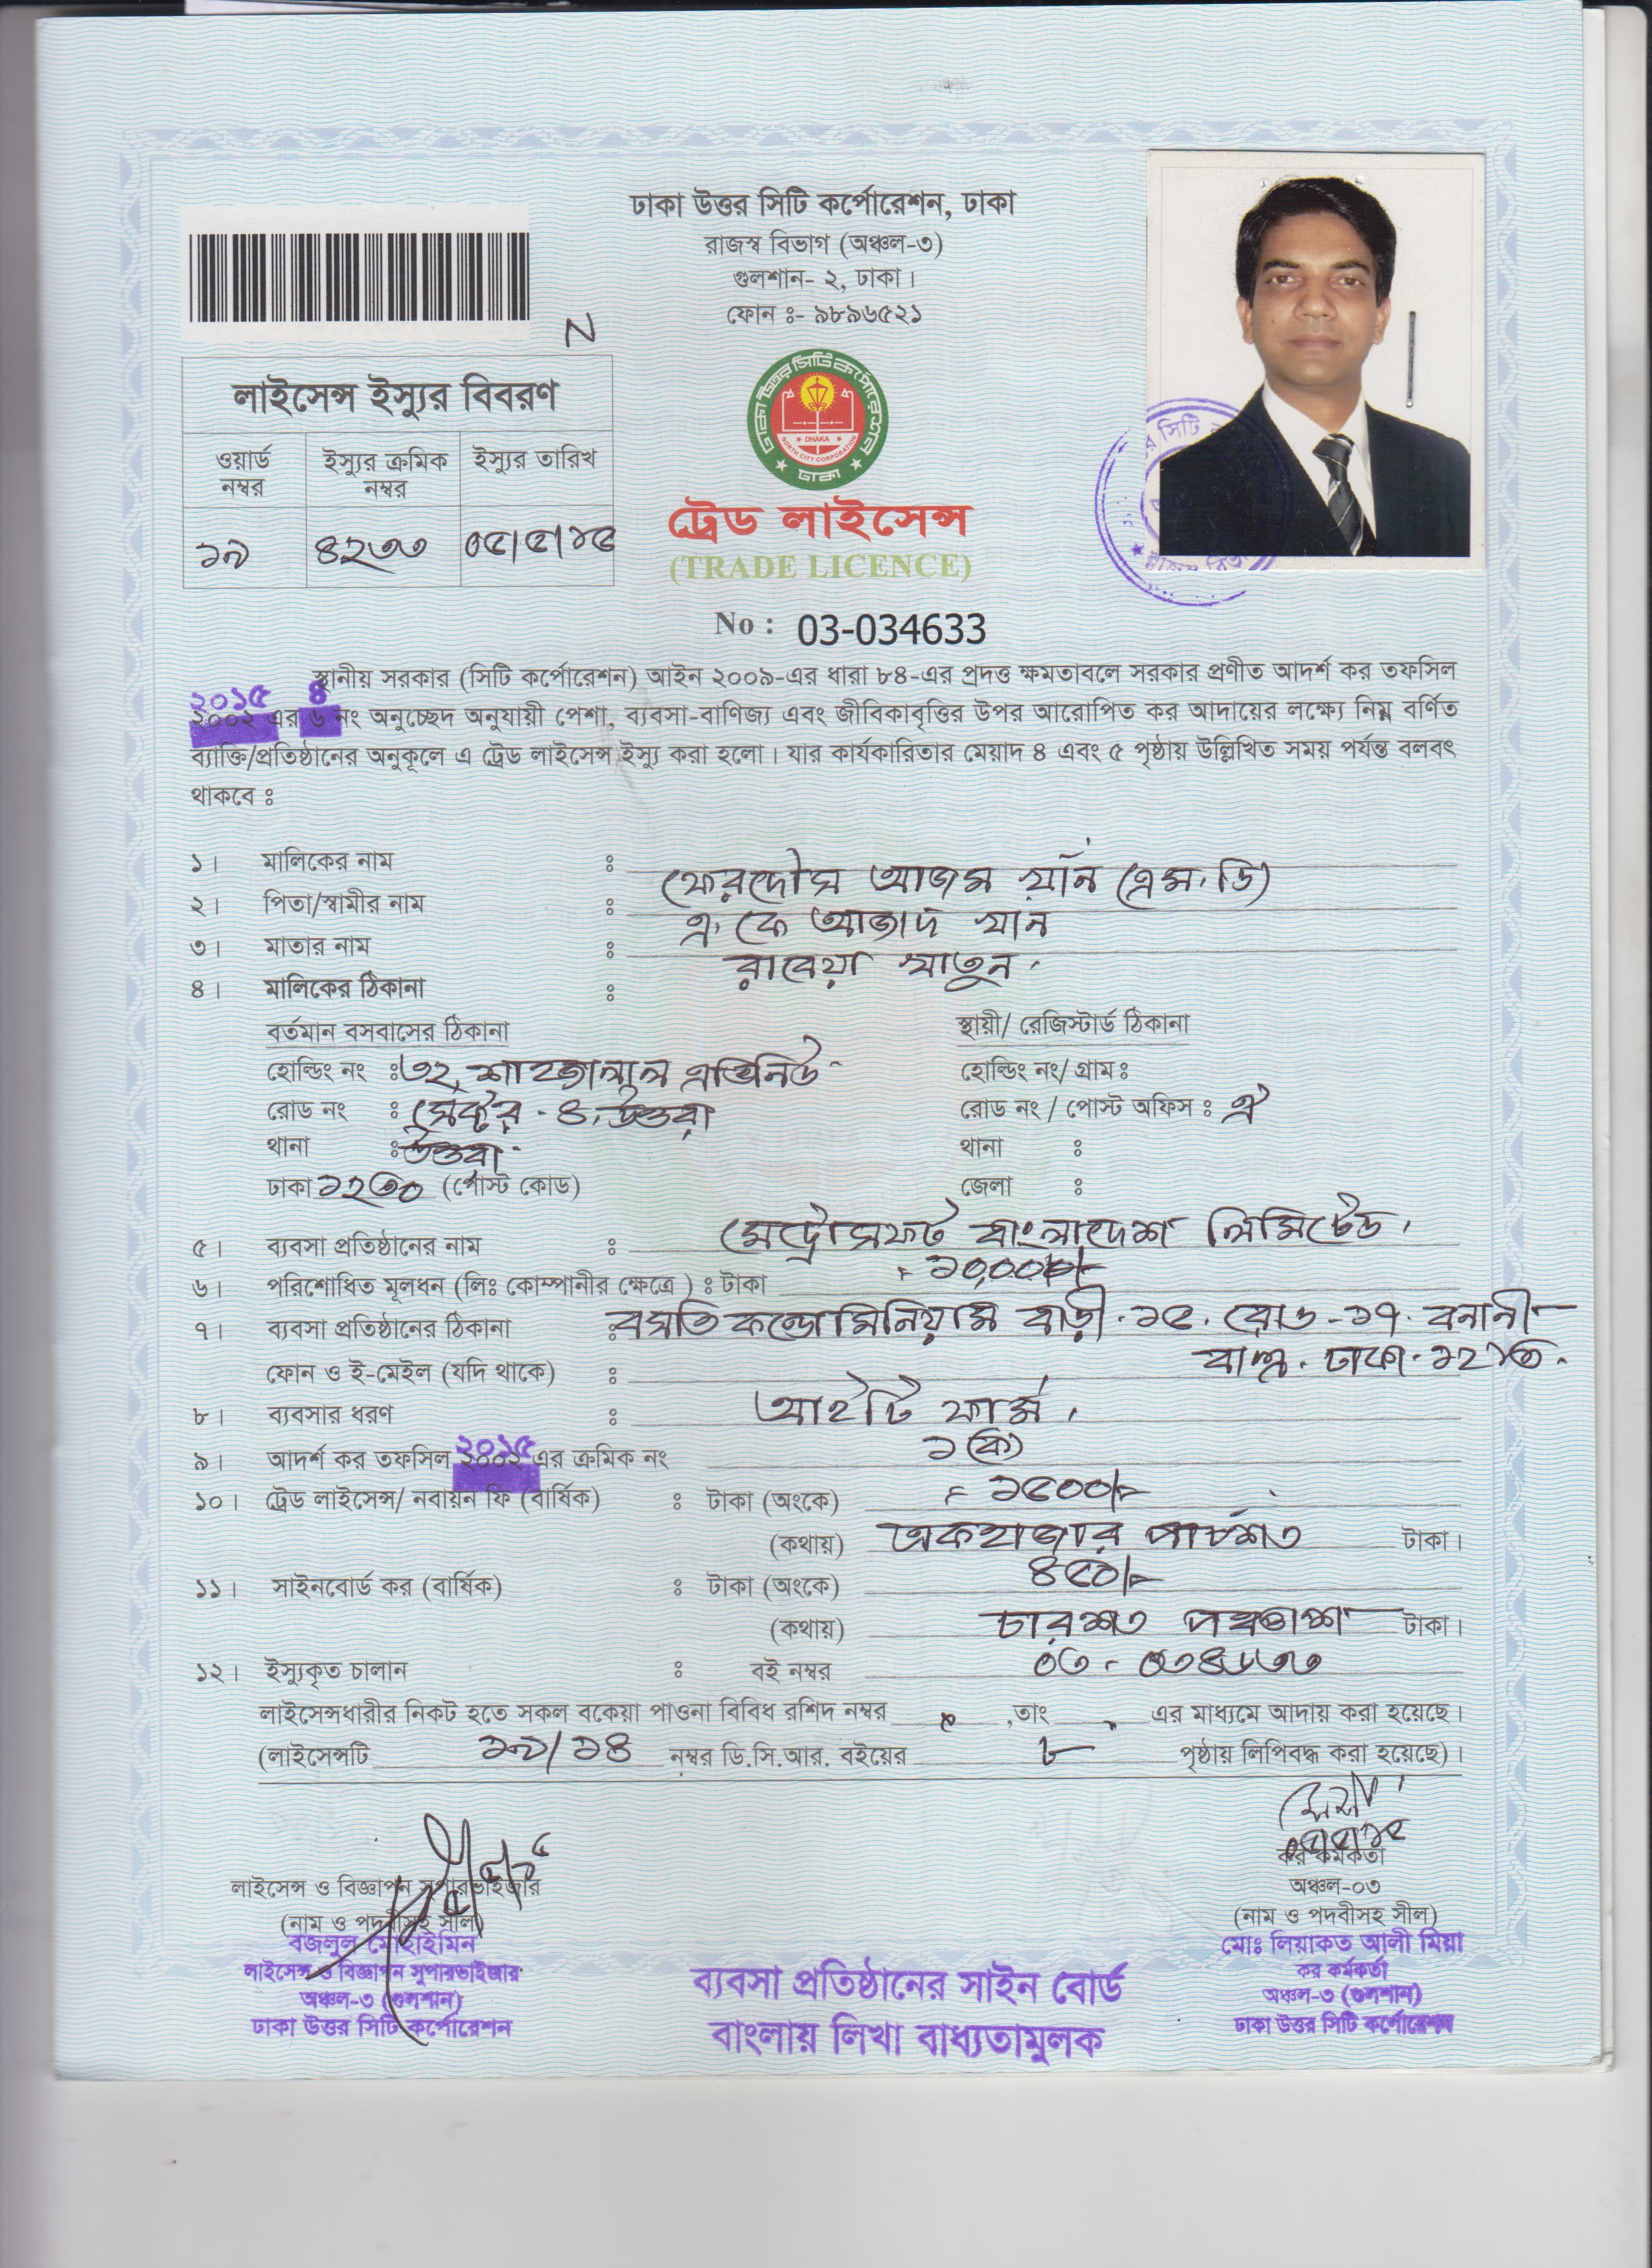 ঢাকা উত্তর সিটি কর্পোরেশন, ঢাকা
রাজস্ব বিভাগ (অঞ্চল-৩)
গুলশান- ২, ঢাকা।
ফোন ঃ- ৯৮৯৬৫২১
N
লাইসেন্স ইস্যুর বিবরণ
ওয়ার্ড নম্বর ইস্যুর ক্রমিক নম্বর ইস্যুর তারিখ
১৯ ৪২৩৩ ০৫/৫/১৫
ঢাকা উত্তর সিটি কর্পোরেশন
DHAKA
NORTH CITY CORPORATION
ঢাকা
ট্রেড লাইসেন্স
(TRADE LICENCE)
No : 03-034633
স্থানীয় সরকার (সিটি কর্পোরেশন) আইন ২০০৯-এর ধারা ৮৪-এর প্রদত্ত ক্ষমতাবলে সরকার প্রণীত আদর্শ কর তফসিল
২০১৫ ৪
২০০২ এর ৬ নং অনুচ্ছেদ অনুযায়ী পেশা, ব্যবসা-বাণিজ্য এবং জীবিকাবৃত্তির উপর আরোপিত কর আদায়ের লক্ষ্যে নিম্ন বর্ণিত
ব্যাক্তি/প্রতিষ্ঠানের অনুকূলে এ ট্রেড লাইসেন্স ইস্যু করা হলো। যার কার্যকারিতার মেয়াদ ৪ এবং ৫ পৃষ্ঠায় উল্লিখিত সময় পর্যন্ত বলবৎ
থাকবে ঃ
১। মালিকের নাম ঃ ফেরদৌস আজম খাঁন (এম.ডি)
২। পিতা/স্বামীর নাম ঃ এ. কে আজাদ খান
৩। মাতার নাম ঃ রাবেয়া খাতুন
৪। মালিকের ঠিকানা ঃ
বর্তমান বসবাসের ঠিকানা স্থায়ী/ রেজিস্টার্ড ঠিকানা
হোল্ডিং নং ঃ ৩২, শাহজালাল এভিনিউ হোল্ডিং নং/ গ্রাম ঃ
রোড নং ঃ সেক্টর - ৪, উত্তরা রোড নং / পোস্ট অফিস ঃ ঐ
থানা ঃ উত্তরা থানা ঃ
ঢাকা ১২৩০ (পোস্ট কোড) জেলা ঃ
৫। ব্যবসা প্রতিষ্ঠানের নাম ঃ মেট্রোসফট বাংলাদেশ লিমিটেড
৬। পরিশোধিত মূলধন (লিঃ কোম্পানীর ক্ষেত্রে ) ঃ টাকা
৭। ব্যবসা প্রতিষ্ঠানের ঠিকানা ঃ বসতি কন্ডোমিনিয়াম বাড়ী-১৫. রোড-১৭. বনানী
ঢাকা-১২১৩.
ফোন ও ই-মেইল (যদি থাকে) ঃ
৮। ব্যবসার ধরণ ঃ আইটি ফার্ম
২০১৫
৯। আদর্শ কর তফসিল ২০০২ এর ক্রমিক নং ১(ক)
১০। ট্রেড লাইসেন্স/ নবায়ন ফি (বার্ষিক) ঃ টাকা (অংকে) = ১৫০০/=
(কথায়) একহাজার পাচশত টাকা।
১১। সাইনবোর্ড কর (বার্ষিক) ঃ টাকা (অংকে) ৪৫০/=
(কথায়) চারশত পঞ্চাশ টাকা।
১২। ইস্যুকৃত চালান ঃ বই নম্বর ০৩-০৩৪৬৩৩
লাইসেন্সধারীর নিকট হতে সকল বকেয়া পাওনা বিবিধ রশিদ নম্বর ,তাং এর মাধ্যমে আদায় করা হয়েছে।
(লাইসেন্সটি ১৯/১৪ নম্বর ডি.সি.আর. বইয়ের ৮ পৃষ্ঠায় লিপিবদ্ধ করা হয়েছে)।
লাইসেন্স ও বিজ্ঞাপন সুপারভাইজার
(নাম ও পদবীসহ সীল)
বজলুল মোহাইমিন
লাইসেন্স ও বিজ্ঞাপন সুপারভাইজার
অঞ্চল-৩ (গুলশান)
ঢাকা উত্তর সিটি কর্পোরেশন
ব্যবসা প্রতিষ্ঠানের সাইন বোর্ড
বাংলায় লিখা বাধ্যতামুলক
কর কর্মকর্তা
অঞ্চল-০৩
(নাম ও পদবীসহ সীল)
মোঃ লিয়াকত আলী মিয়া
কর কর্মকর্তা
অঞ্চল-৩ (গুলশান)
ঢাকা উত্তর সিটি কর্পোরেশন